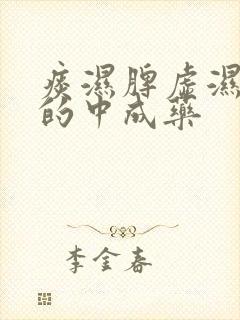 痰濕脾虛濕
的中成藥
李金春